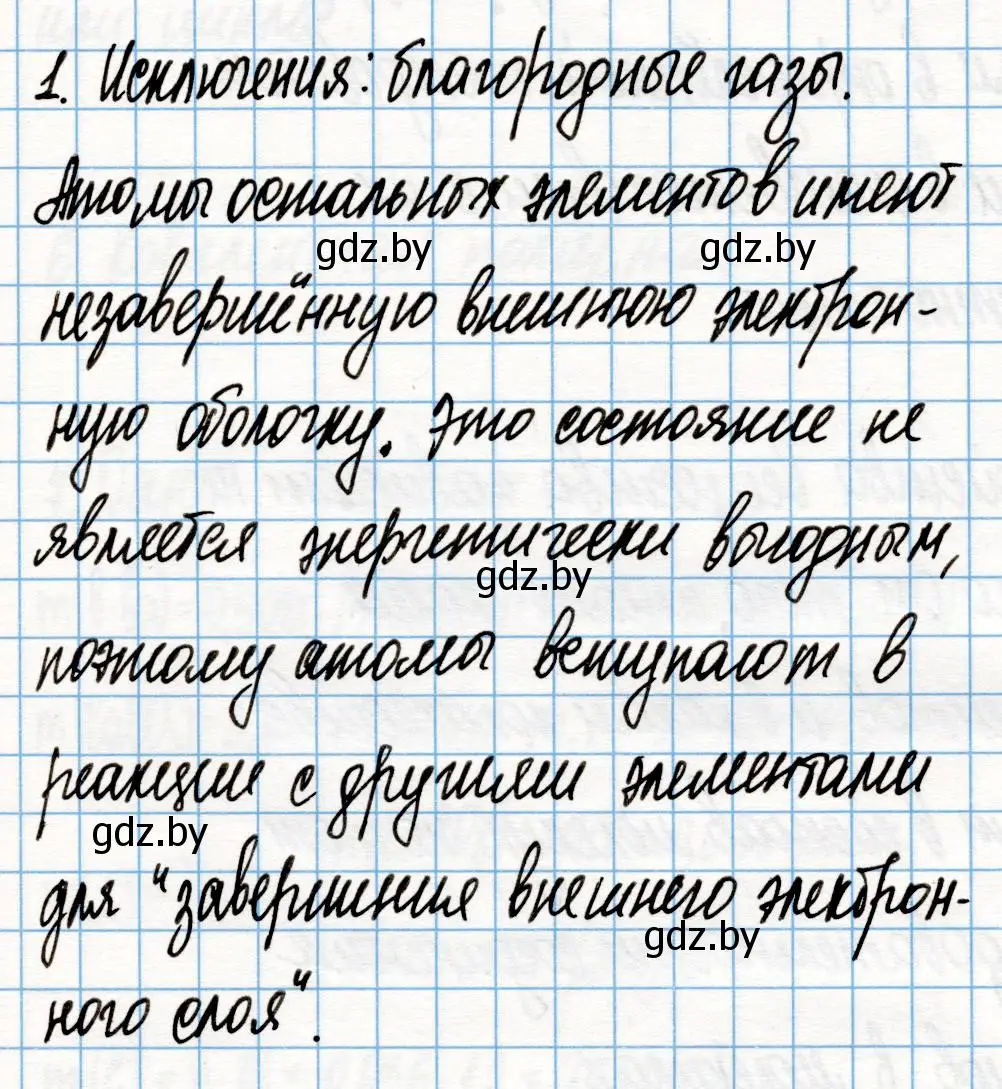 1. Исключения: благородные газы.
Атомы остальных элементов имеют
gdz.by gdz.by
незавершённую внешнюю электрон-
ную оболочку. Это состояние не
является энергетически выгодным,
gdz.by
поэтому атомы вступают в
реакции с другими элементами
gdz.by
для "завершения внешнего электрон-
gdz.by
ного слоя".